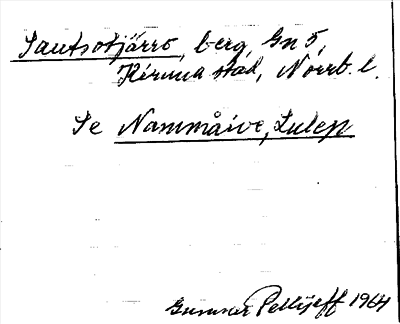 Sautsotjårro, berg, Gn 5,
Kiruna stad, Norrb. l.
Se Nammåive, Lulep
Gunnar Pellijeff 1964